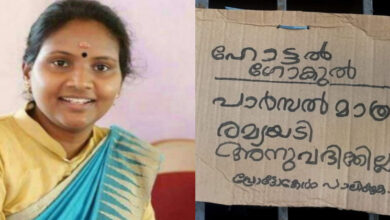 ഹോട്ടൽ
ഗോകുൽ
പാർസൽ മാത്ര
രമ്യയടി
അനുവദിക്കില്ല
പ്രോട്ടോകോൾ